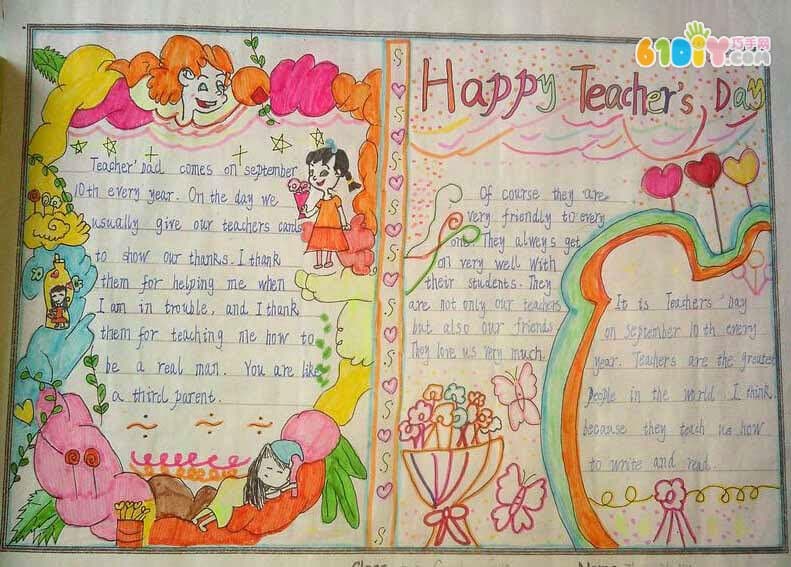 61DIY.com
巧手网
Happy Teacher's Day
Teacher' bad comes on september
10th every year. On the day we
usually give our teachers cards
to show our thanks. I thank
them for helping me when
I am in trouble, and I thank
them for teaching me how to
be a real man. You are like
a third parent.
Of course they are
very friendly to every
one. They always get
on very well with
their students. They
are not only our teachers
but also our friends
They love us very much.
It is Teachers' Day
on september 10th every
year. Teachers are the greatest
people in the world I think.
because they teach us how
to write and read.
Class
Name